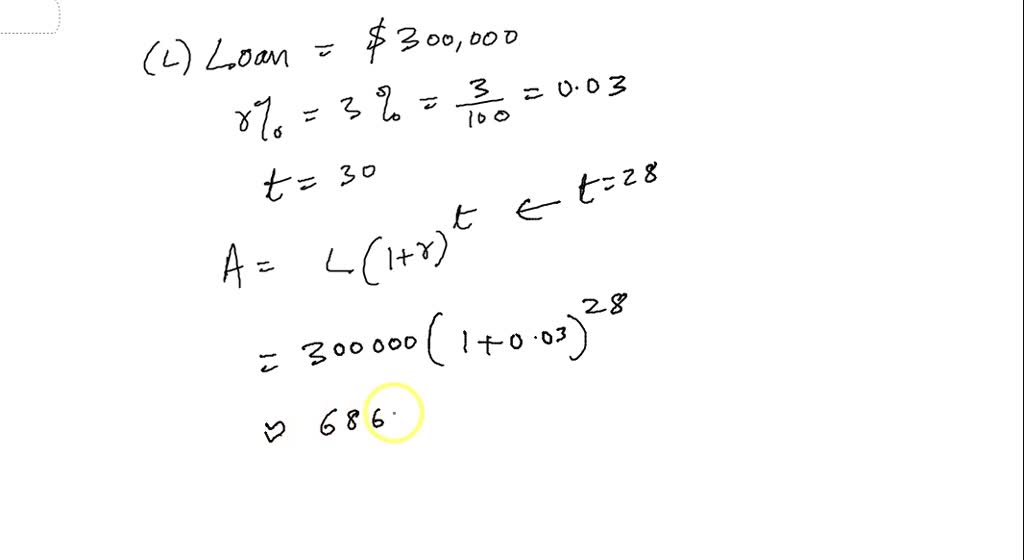 (L) Loan = $300,000
r% = 3% = 3/100 = 0.03
t = 30
A = L(1+r)^t ← t=28
= 300000(1+0.03)^28
⇒ 686